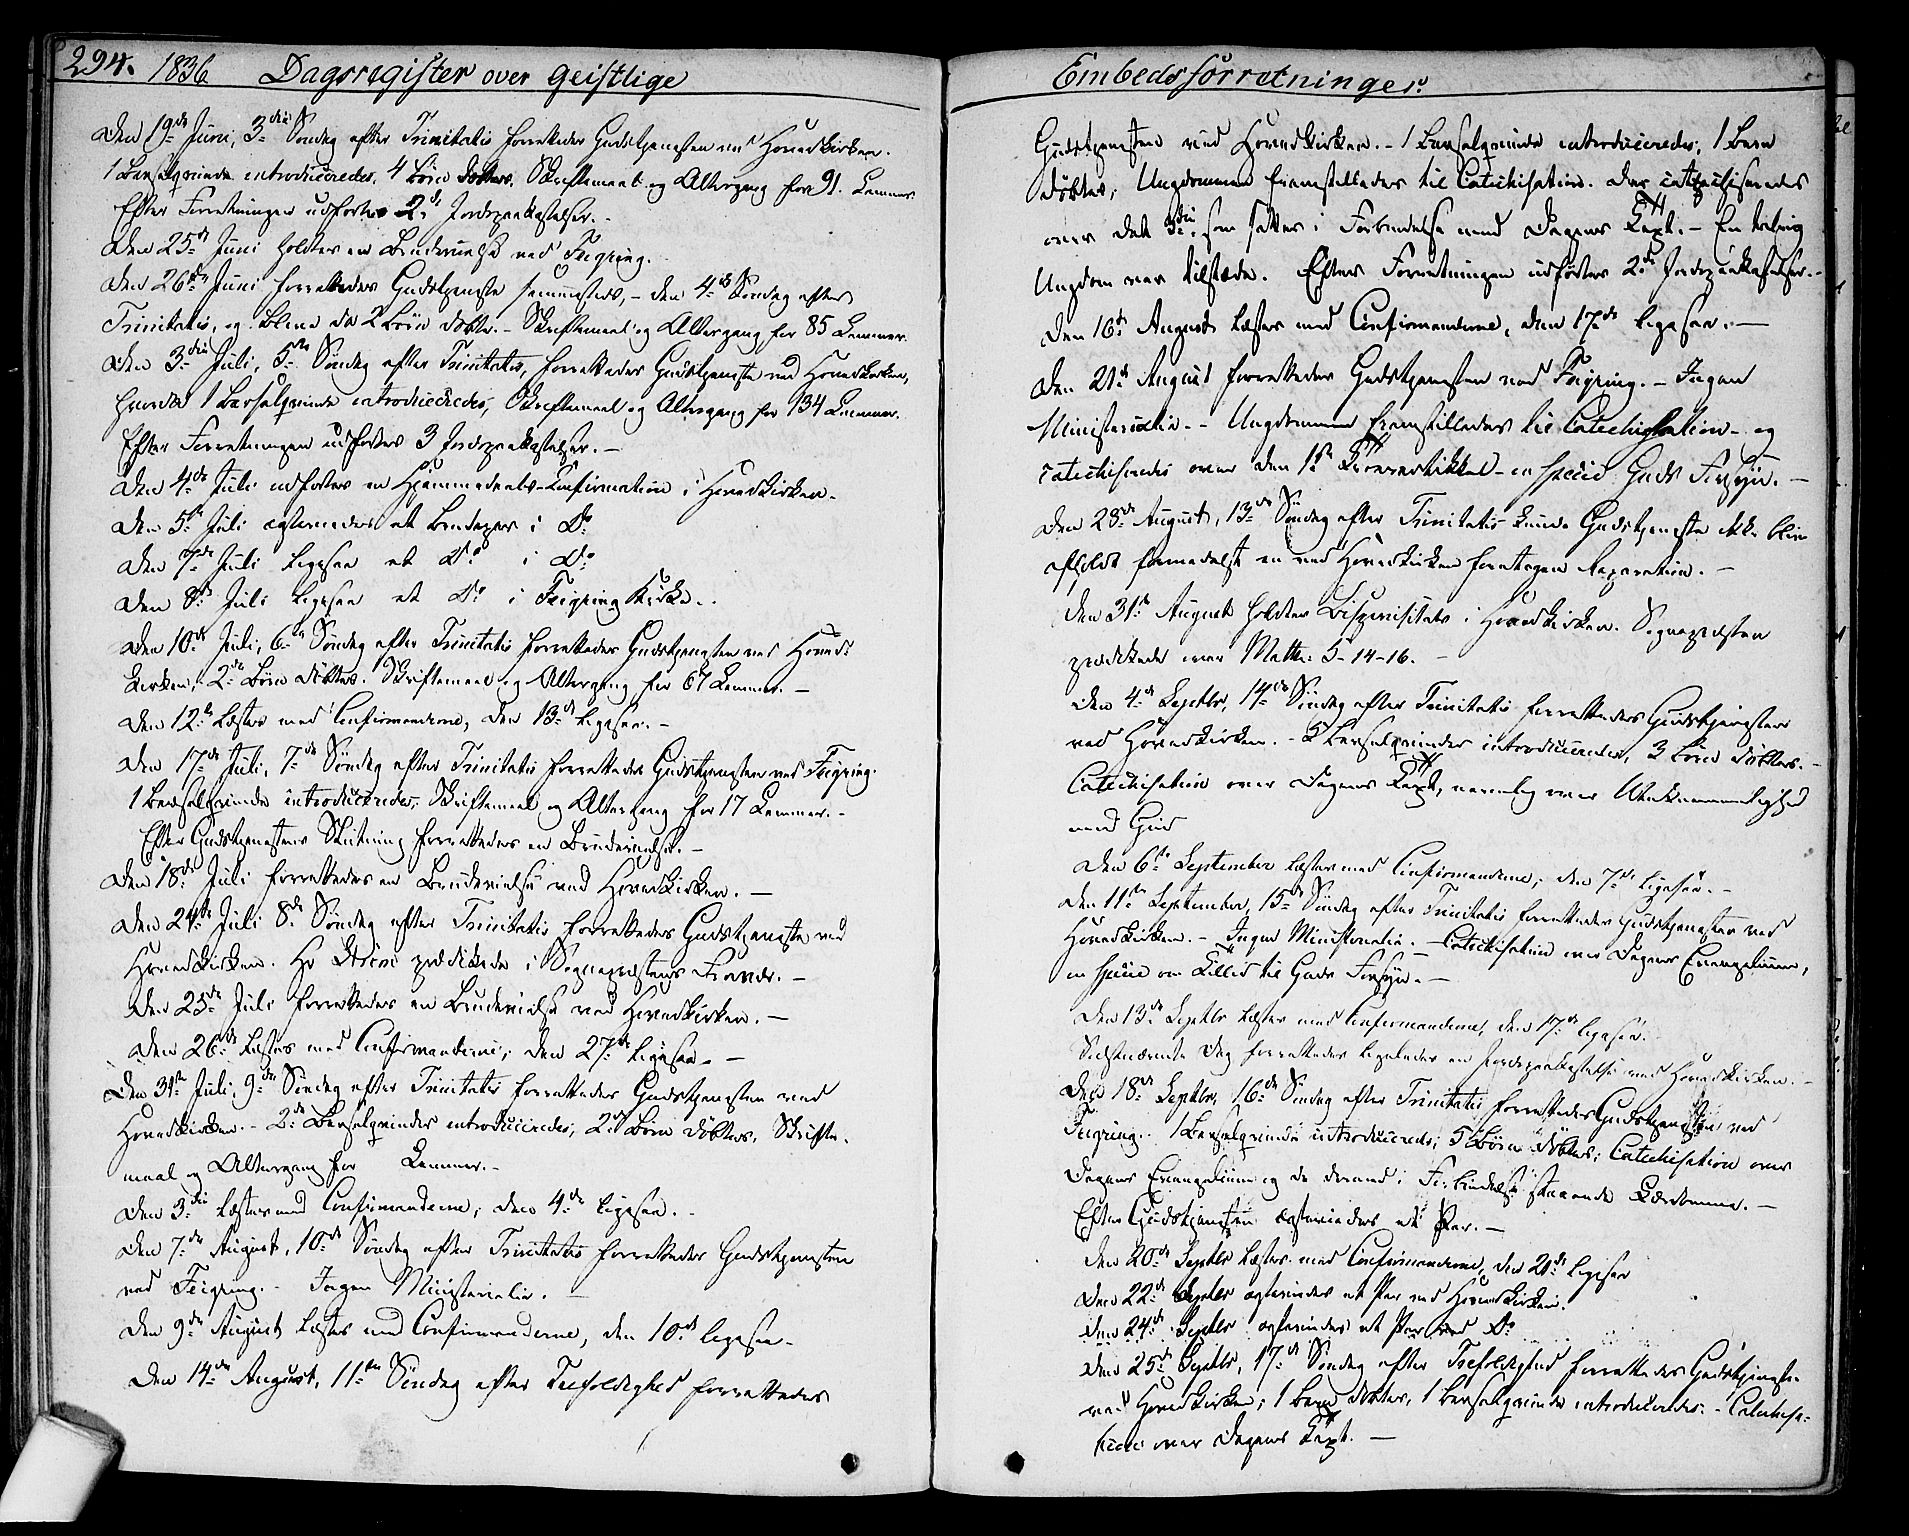 294. 1836 Dagsregister over geistlige
Den 19de Juni, 3die Søndag efter Trinitatis forrettedes Gudstjenesten ved Hovedkirken.
1 Barselqvinde introduceredes, 4 Børn døbtes. Skriftemaal og Altergang for 91 Lemmer.
Efter Forretningen udførtes 2de Jordpaakastelser.
Den 25de Juni holdtes en Brudevielse ved Feigring.
Den 26de Juni forrettedes Gudstjeneste sammesteds, - den 4de Søndag efter
Trinitatis, og bleve da 2 Børn døbte. - Skriftemaal og Altergang for 85 Lemmer.
Den 3die Juli, 5te Søndag efter Trinitatis, forrettedes Gudstjeneste ved Hovedkirken,
hvorda 1 Barselqvinde introduceredes, Skriftemaal og Altergang for 134 Lemmer.
Efter Forretningen udførtes 3 Jordpaakastelser. -
Den 4de Juli udførtes en Hjemmedaabs-Confirmation i Hovedkirken.
Den 5te Juli egteviedes et Brudepar i Do
Den 7de Juli ligesaa et Do i Do
Den 8de Juli ligesaa et Do i Feigring Kirke.
Den 10de Juli, 6te Søndag efter Trinitatis forrettedes Gudstjenesten ved Hoved-
kirken, 2de Børn døbtes. Skriftemaal og Altergang for 67 Lemmer. -
Den 12te læstes med Confirmanderne, den 13de ligesaa. -
Den 17de Juli, 7de Søndag efter Trinitatis forrettedes Gudstjenesten ved Feigring.
1 Barselqvinde introduceredes, Skriftemaal og Altergang for 17 Lemmer. -
Efter Gudstjenestens Slutning forrettedes en Brudevielse. -
Den 18de Juli forrettedes en Brudevielse ved Hovedkirken. -
Den 24de Juli 8de Søndag efter Trinitatis forrettedes Gudstjeneste ved
Hovedkirken. Hr prædikede i Sognepræstens Fravær. -
Den 25de Juli forrettedes en Brudevielse ved Hovedkirken. -
Den 26de læstes med Confirmanderne, den 27de ligesaa. -
Den 31te Juli, 9de Søndag efter Trinitatis forrettedes Gudstjenesten ved
Hovedkirken. - 2de Barselqvinder introduceredes, 2de Børn døbtes. Skrifte-
maal og Altergang for Lemmer. -
Den 3die læstes med Confirmanderne, den 4de ligesaa. -
Den 7de August, 10de Søndag efter Trinitatis forrettedes Gudstjenesten
ved Feigring. - Ingen Ministerialia. -
Den 9de August læstes med Confirmanderne, den 10de ligesaa. -
Den 14de August, 11te Søndag efter Trefoldighed forrettedes
Embedsforretninger.
Gudstjenesten ved Hovedkirken. - 1 Barselqvinde introduceredes, 1 Barn
døbtes, Ungdommen fremstilledes til Catechisation. Der catechiseredes
over det 3die som sattes i Forbindelse med Dagens Text. - En talrig
Ungdom var tilstæde. Efter Forretningen udførtes 2de Jordpaakastelser. -
Den 16de August læstes med Confirmanderne, den 17de ligesaa. -
Den 21de August forrettedes Gudstjenesten ved Feigring. - Ingen
Ministerialia. - Ungdommen fremstilledes til Catechisation - og
catechiseredes over den 1ste Troesartikkel - in specie Guds Forsyn. -
Den 28de August, 13de Søndag efter Trinitatis kunde Gudstjeneste ikke blive
afholdt formedelst en ved Hovedkirken foretagen Reparation. -
Den 31te August holdtes Bispevisitats i Hovedkirken. Sognepræsten
prædikede over Matth: 5-14-16. -
Den 4de Septbr, 14de Søndag efter Trinitatis forrettedes Gudstjenesten
ved Hovedkirken. - 2 Barselqvinder introduceredes, 3 Børn døbtes. -
Catechisation over Dagens Text, navnlig over Utaknemmelighed
mod Gud
Den 6te September læstes med Confirmanderne, den 7de ligesaa. -
Den 11te September, 15de Søndag efter Trinitatis forrettedes Gudstjenesten ved
Hovedkirken. - Ingen Ministerialia. - Catechisation over Dagens Evangelium,
in specie om Tillid til Guds Forsyn. -
Den 13de Septbr læstes med Confirmanderne, den 17de ligesaa.
Sidstnævnte Dag forrettedes ligeledes en Jordpaakastelse ved Hovedkirken. -
Den 18de Septbr, 16de Søndag efter Trinitatis forrettedes Gudstjenesten ved
Feigring. 1 Barselqvinde introduceredes, 5 Børn døbtes; Catechisation over
Dagens Evangelium og de dermed i Forbindelse staaende Lærdomme. -
Efter Gudstjenesten egteviedes et Par. -
Den 20de Septbr læstes med Confirmanderne, den 21de ligesaa
Den 22de Septbr egteviedes et Par ved Hovedkirken.
Den 24de Septbr egteviedes et Par ved Do
Den 25de Septbr, 17de Søndag efter Trefoldighed forrettedes Gudstjeneste
ved Hovedkirken; 1 Barn døbtes, 1 Barselqvinde introduceredes. - Catechisa-
tion over Dagens Text. -